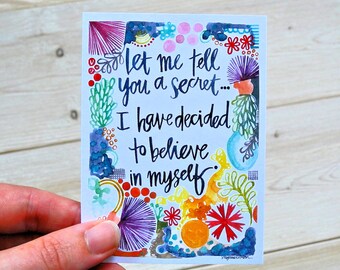 let me tell
you a secret...
I have decided
to believe
in myself.